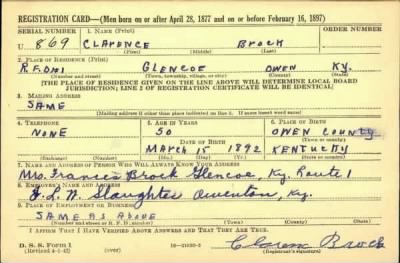 REGISTRATION CARD—(Men born on or after April 28, 1877 and on or before February 16, 1897)
SERIAL NUMBER 1. NAME (Print) ORDER NUMBER
U 869 CLARENCE BROCK
(First) (Middle) (Last)
2. PLACE OF RESIDENCE (Print)
R.F.D#1 GLENCOE OWEN KY.
(Number and street) (Town, township, village, or city) (County) (State)
[THE PLACE OF RESIDENCE GIVEN ON THE LINE ABOVE WILL DETERMINE LOCAL BOARD
JURISDICTION; LINE 2 OF REGISTRATION CERTIFICATE WILL BE IDENTICAL]
3. MAILING ADDRESS
SAME
[Mailing address if other than place indicated on line 2. If same insert word same]
4. TELEPHONE 5. AGE IN YEARS 6. PLACE OF BIRTH
NONE 50 OWEN COUNTY
DATE OF BIRTH (Town or county)
MARCH 15 1892 KENTUCKY
(Exchange) (Number) (Mo.) (Day) (Yr.) (State or country)
7. NAME AND ADDRESS OF PERSON WHO WILL ALWAYS KNOW YOUR ADDRESS
Mrs. Frances Brock Glencoe, Ky. Route 1
8. EMPLOYER'S NAME AND ADDRESS
Slaughter Owenton, Ky.
9. PLACE OF EMPLOYMENT OR BUSINESS
SAME AS ABOVE
(Number and street or R. F. D. number) (Town) (County) (State)
I AFFIRM THAT I HAVE VERIFIED ABOVE ANSWERS AND THAT THEY ARE TRUE.
D. S. S. Form 1
(Revised 4-1-42) (over) Brock
(Registrant's signature)